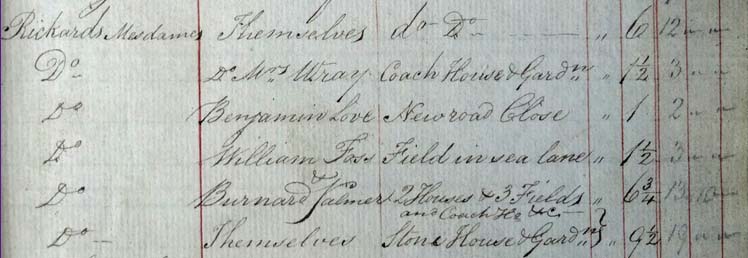 Rickards Mesdames Themselves do Do — " 6 12 " "
Do Do Mrs Wray Coach House & Gardn " 1½ 3 " "
Do Benjamin Love New road Close " 1 2 " "
Do William Foss Field in sea lane " 1½ 3 " "
Do Burnard & Palmer 2 Houses & 3 Fields " 6¾ 13 10 "
and Coach Hs &c. —
Do — Themselves Stone House & Gardn } 9½ 19 " "